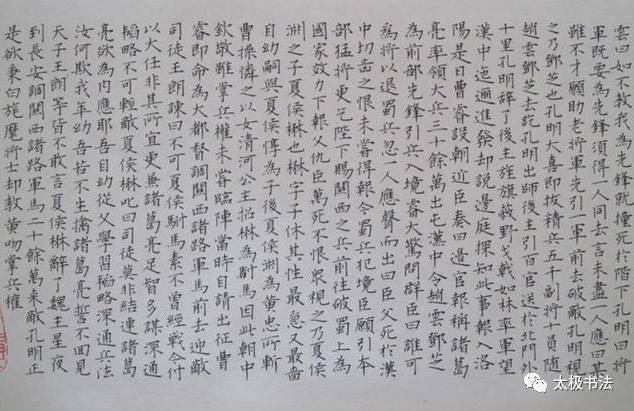 雲曰如不教我為先鋒就撞死於階下孔明曰將
軍既要為先鋒須得一人同去言未盡一人應曰某
雖不才願助老將軍先引一軍前去破敵孔明視
之乃鄧芝也孔明大喜即拔精兵五千副將十員隨
趙雲鄧芝去訖孔明出師後主引百官送於北門外
十里孔明辭了後主旌旗蔽野戈戟如林率軍望
漢中迤邐進發却說邊庭探知此事報入洛
陽是日曹睿設朝近臣奏曰邊官報稱諸葛
亮率領大兵三十餘萬出屯漢中令趙雲鄧芝
為前部先鋒引兵入境睿大驚問群臣曰誰可
為將以退蜀兵忽一人應聲而出曰臣父死於漢
中切齒之恨未嘗得報今蜀兵犯境臣願引本
部猛將更乞陛下賜關西之兵前往破蜀上為
國家效力下報父仇臣萬死不恨眾視之乃夏侯
淵之子夏侯楙也楙字子休其性最急又最嗇
自幼嗣與夏侯惇為子後夏侯淵為黃忠所斬
曹操憐之以女清河公主招楙為副馬因此朝中
欽敬雖掌兵權未嘗臨陣當時自請出征曹
睿即命為大都督調關西諸路軍馬前去迎敵
司徒王朗諫曰不可夏侯駙馬素不曾經戰今付
以大任非其所宜更兼諸葛亮足智多謀深通
韜略不可輕敵夏侯楙叱曰司徒莫非結連諸葛
亮欲為內應耶吾自幼從父學習韜略深通兵法
汝何欺我年幼吾若不生擒諸葛亮誓不回見
天子王朗等皆不敢言夏侯楙辭了魏王星夜
到長安調關西諸路軍馬二十餘萬來敵孔明正
是欲秉白旄麾將士却教黃吻掌兵權
太极书法